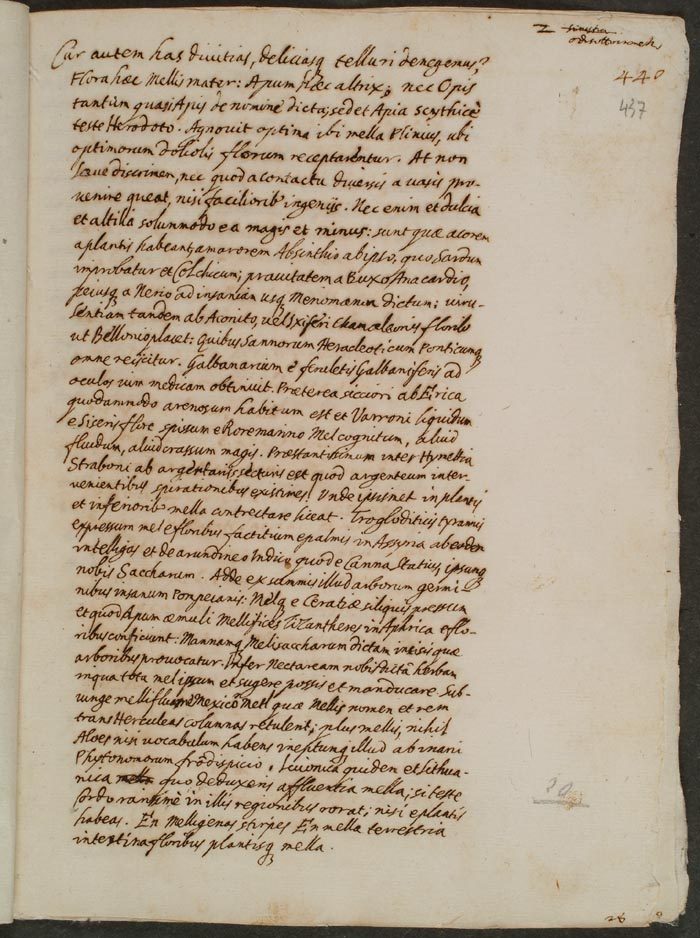 2
440
437
Cur autem has divitias, deliciasq telluri denegemus?
Flora haec Mellis mater: Apum haec altrix; nec Opis
tantum quasi Apus de nomine dicta; sed et Apia scythicè
teste Herodoto. Agnovit optima ibi mella Plinius, ubi
optimorum doliolis florum receptarentur. At non
leve discrimen, nec quod a contactu diversis a vasis pro-
venire queat, nisi facilioribus ingenijs. Nec enim et dulcia
et altilia solummodo ea magis et minus: sunt quae acorem
a plantis habeant; amarorem Absinthio ab ipso, quo Sardum
improbatur et Colchicum; pravitatem a Buxo Anacardio,
peiusq a Nerio ad insaniam usq Menomaenon dictum; viru-
lentiam tandem ab Aconito, vel Ixiseri Chamaeleonis floribus
ut Bellonio placet: Quibus Sannorum Heracleoticum Ponticumq
omne reijcitur. Galbanarium è feruletis Galbaniferis ad
oculos vim medicam obtinuit. Praeterea sicciori ab Erica
quodammodo arenosum habitum est et Varroni liquidum
e Siseris flore spissum e Roremarino Mel cognitum, aliud
fluidum, aliud crassum magis. Praestantissimum inter Hymettia
Straboni ab argentarijs secturis est quod argenteum inter-
venientibus spirationibus existimes. Unde ipsusmet in plantis
et inferioribus mella contrectare liceat. Trogloditicis tyrannis
expressum mel e floribus factitium e palmis in Assyria ab eodem
intelligas et de arundine Indica quod e Canna Statius, ipsumq
nobis Saccharum. Adde ex summis illud arborum germi-
nibus insanum Pompeianis: Melq e Ceratiae siliquis pressum
et quod Apum aemuli Mellifices Zizantheres in Aphrica e flo-
ribus conficiunt: Mannamq Melisaccharum dictam incisis quae
arboribus provocatur. Infer Nectaream nobis dictã herbam
in qua tota mel ipsum et sugere possis et manducare. Sub-
iunge mellifluum è Mexico Metl quae Mellis nomen et rem
trans Herculeas columnas retulent; plus mellis, nihil
Aloes nisi vocabulum habens ineptumq illud ab inani
Phytonomorum frõdispicio. Livonica quidem et Lithua-
nica quo deduxeris affluentia mella; si teste
Cordo rarissimè in illis regionibus rorat; nisi e plantis
habeas. En Melligenas stirpes En mella terrestria
intertina floribus plantisq mella.
20